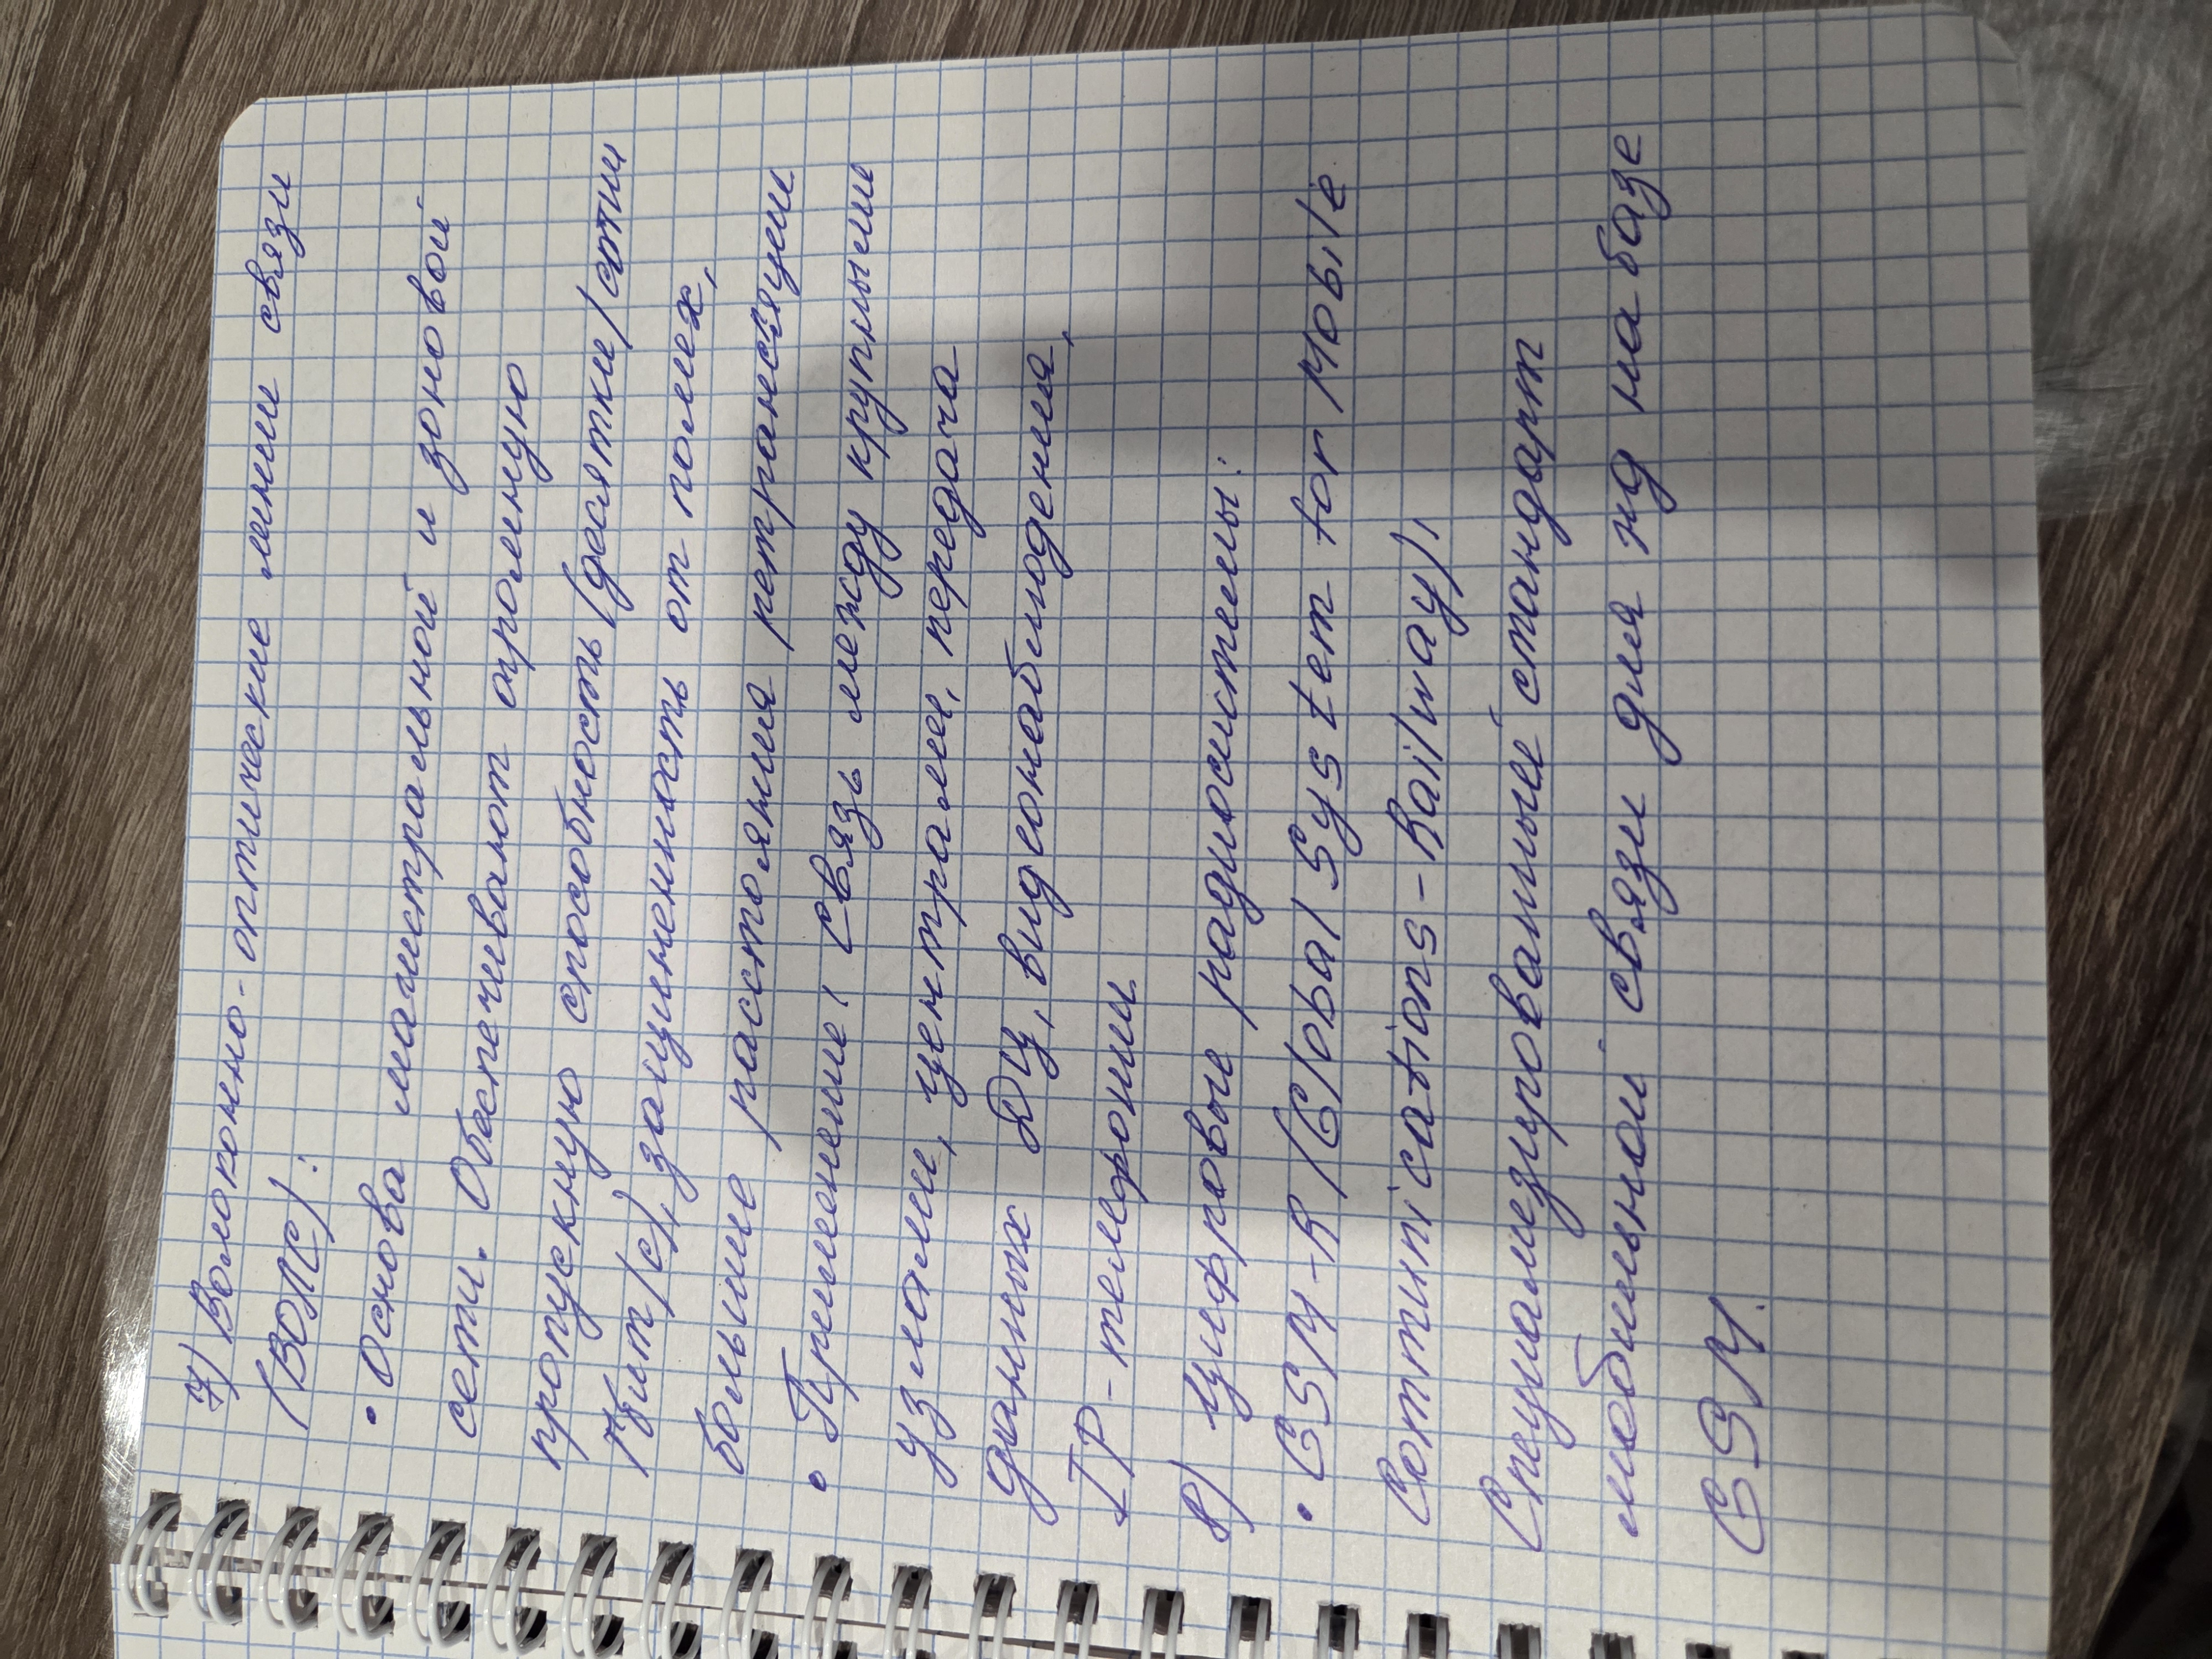 7) Волоконно-оптические линии связи
(ВОЛС):
• Основа магистральной и зоновой
сети. Обеспечивают огромную
пропускную способность (десятки/сотни
Гбит/с), защищенность от помех,
большие расстояния ретрансляции
• Применение: Связь между крупными
узлами, центрами, передача
данных ДЦ, видеонаблюдения,
IP-телефонии
8) Цифровые радиосистемы:
• GSM-R (Global System for Mobile
Communications-Railway),
Специализированный стандарт
мобильной связи для жд на базе
GSM.